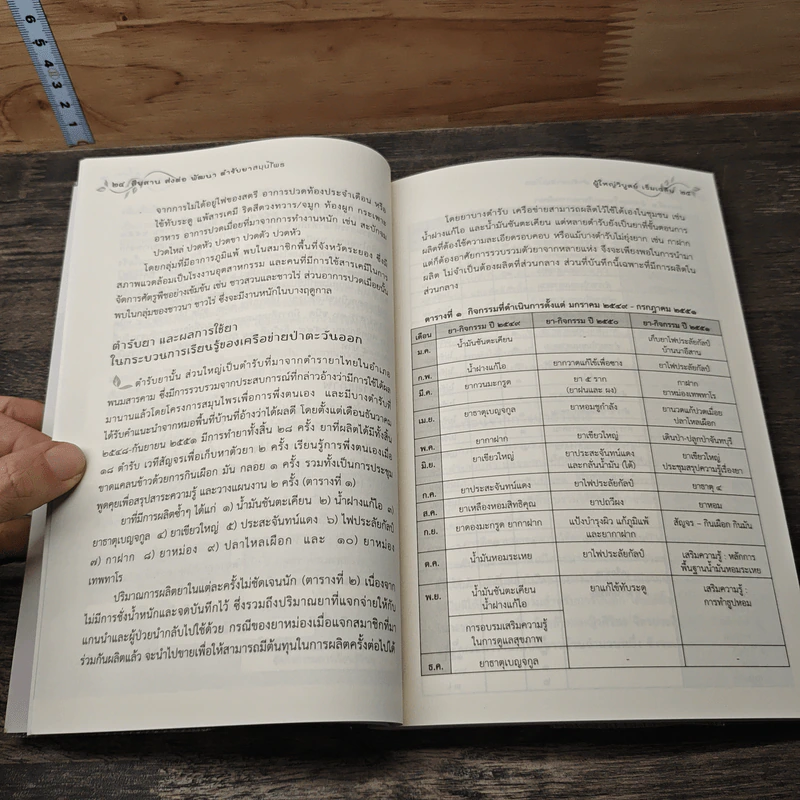 6 5 4 3 2 1
๒๔ สืบสาน ส่งต่อ พัฒนา ตำรับยาสมุนไพร
จากการไม่ได้อยู่ไฟของสตรี อาการปวดท้องประจำเดือน หรือ
ใช้ทับระดู แพ้สารเคมี ริดสีดวงทวาร/จมูก ท้องผูก กระเพาะ
อาหาร อาการปวดเมื่อยที่มาจากการทำงานหนัก เช่น สะบักจม
ปวดไหล่ ปวดหัว ปวดขา ปวดตัว ปวดหัว
โดยกลุ่มที่มีอาการภูมิแพ้ พบในสมาชิกพื้นที่จังหวัดระยอง ซึ่งมี
สภาพแวดล้อมเป็นโรงงานอุตสาหกรรม และคนที่มีการใช้สารเคมีในการ
จัดการศัตรูพืชอย่างเข้มข้น เช่น ชาวสวนและชาวไร่ ส่วนอาการปวดเมื่อยนั้น
พบในกลุ่มของชาวนา ชาวไร่ ซึ่งจะมีงานหนักในบางฤดูกาล
ตำรับยา และผลการใช้ยา
ในกระบวนการเรียนรู้ของเครือข่ายป่าตะวันออก
ตำรับยานั้น ส่วนใหญ่เป็นตำรับที่มาจากตำรายาไทยในอำเภอ
พนมสารคาม ซึ่งมีการรวบรวมจากประสบการณ์ที่กล่าวอ้างว่ามีการใช้ได้ผล
มานานแล้วโดยโครงการสมุนไพรเพื่อการพึ่งตนเอง และมีบางตำรับที่
ได้รับคำแนะนำจากหมอพื้นที่บ้านที่อ้างว่าได้ผลดี โดยตั้งแต่เดือนธันวาคม
๒๕๔๘-กันยายน ๒๕๕๑ มีการทำยาทั้งสิ้น ๒๘ ครั้ง ยาที่ผลิตได้มีทั้งสิ้น
๑๘ ตำรับ เวทีสัญจรเพื่อเก็บหาตัวยา ๒ ครั้ง เรียนรู้การพึ่งตนเองเมื่อ
ขาดแคลนข้าวด้วยการกินเผือก มัน กลอย ๑ ครั้ง รวมทั้งเป็นการประชุม
พูดคุยเพื่อสรุปสาระความรู้ และวางแผนงาน ๒ ครั้ง (ตารางที่ ๑)
ยาที่มีการผลิตซ้ำๆ ได้แก่ ๑) น้ำมันชันตะเคียน ๒) น้ำฝางแก้ไอ ๓)
ยาธาตุเบญจกูล ๔) ยาเขียวใหญ่ ๕) ประสะจันทน์แดง ๖) ไฟประลัยกัลป์
๗) กาฝาก ๘) ยาหม่อง ๙) ปลาไหลเผือก และ ๑๐) ยาหม่อง
เทพทาโร
ปริมาณการผลิตยาในแต่ละครั้งไม่ชัดเจนนัก (ตารางที่ ๒) เนื่องจาก
ไม่มีการชั่งน้ำหนักและจดบันทึกไว้ ซึ่งรวมถึงปริมาณยาที่แจกจ่ายให้กับ
แกนนำและผู้ป่วยนำกลับไปใช้ด้วย กรณีของยาหม่องเมื่อแจกสมาชิกที่มา
ร่วมกันผลิตแล้ว จะนำไปขายเพื่อให้สามารถมีต้นทุนในการผลิตครั้งต่อไปได้
ผู้ใหญ่วิบูลย์ เข็มเฉลิม ๒๕
โดยยาบางตำรับ เครือข่ายสามารถผลิตไว้ใช้ได้เองในชุมชน เช่น
น้ำฝางแก้ไอ และน้ำมันชันตะเคียน แต่หลายตำรับยังเป็นยาที่ขั้นตอนการ
ผลิตที่ต้องใช้ความละเอียดรอบคอบ หรือแม้บางตำรับไม่ยุ่งยาก เช่น กาฝาก
แต่ก็ต้องอาศัยการรวบรวมตัวยาจากหลายแห่ง จึงจะเพียงพอในการนำมา
ผลิต ไม่จำเป็นต้องผลิตที่ส่วนกลาง ส่วนที่บันทึกนี้เฉพาะที่มีการผลิตใน
ส่วนกลาง
ตารางที่ ๑ กิจกรรมที่ดำเนินการตั้งแต่ มกราคม ๒๕๔๙ - กรกฎาคม ๒๕๕๑
เดือน ยา-กิจกรรม ปี ๒๕๔๙ ยา-กิจกรรม ปี ๒๕๕๐ ยา-กิจกรรม ปี ๒๕๕๑
ม.ค. น้ำมันชันตะเคียน เก็บยาไฟประลัยกัลป์
บ้านนาอีสาน
ก.พ. น้ำฝางแก้ไอ ยากวาดแก้ไข้เพื่อซาง ยาไฟประลัยกัลป์
มี.ค. ยากวนมะกรูด ยา ๕ ราก กาฝาก
(ยาฝนและ ผง) ยาหม่องเทพทาโร
เม.ย. ยาธาตุเบญจกูล ยาหอมชูกำลัง ยานวดแก้ปวดเมื่อย
ปลาไหลเผือก
พ.ค. ยากาฝาก ยาเขียวใหญ่ เดินป่า-ปลูกป่าจันทบุรี
มิ.ย. ยาเขียวใหญ่ ยาประสะจันทน์แดง ยาเขียวใหญ่
และกลั่นน้ำมัน (ใต้) ประชุมสรุปความรู้เรื่องยา
ก.ค. ยาประสะจันทน์แดง ยาไฟประลัยกัลป์ ยาธาตุ ๔
ส.ค. ยาเหลืองหอมสิทธิคุณ ยาปถวีผง ยาหอม
ก.ย. ยาดองมะกรูด ยากาฝาก แป้งบำรุงผิว แก้ภูมิแพ้ สัญจร - กินเผือก กินมัน
และยากาฝาก
ต.ค. น้ำมันหอมระเหย ยาไฟประลัยกัลป์ เสริมความรู้ : หลักการ
พื้นฐานน้ำมันหอมระเหย
พ.ย. น้ำมันชันตะเคียน ยาแก้ไข้ทับระดู เสริมความรู้ :
น้ำฝางแก้ไอ การทำธูปหอม
การอบรมเสริมความรู้
ในการดูแลสุขภาพ
ธ.ค. ยาธาตุเบญจกูล - -